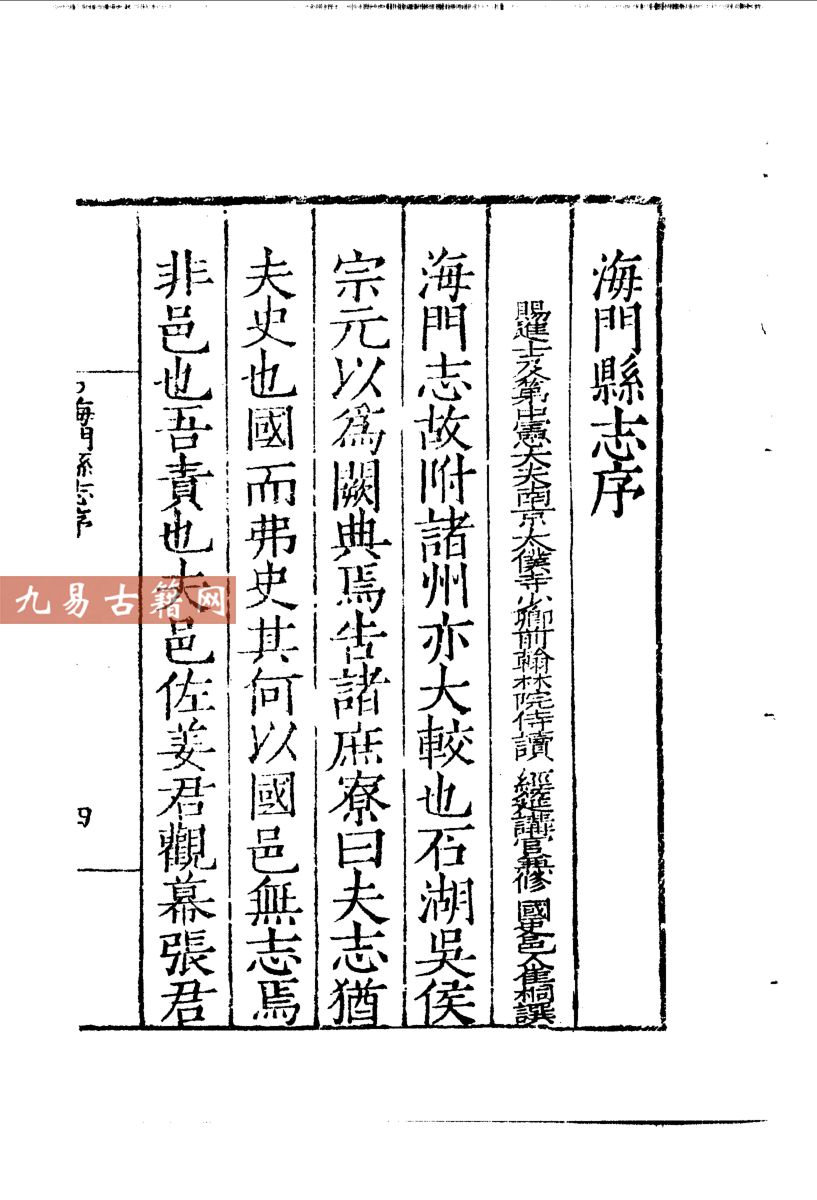 海門縣志序
賜進士及第中憲大夫南京太僕寺少卿前翰林院侍讀 經筵講官兼修 國史邑人崔桐譔
海門志故附諸州亦大較也石湖吳侯
宗元以爲闕典焉告諸庶寮曰夫志猶
夫史也國而弗史其何以國邑無志焉
非邑也吾責也夫邑佐姜君觀幕張君
海門縣志序
四
九易古籍网